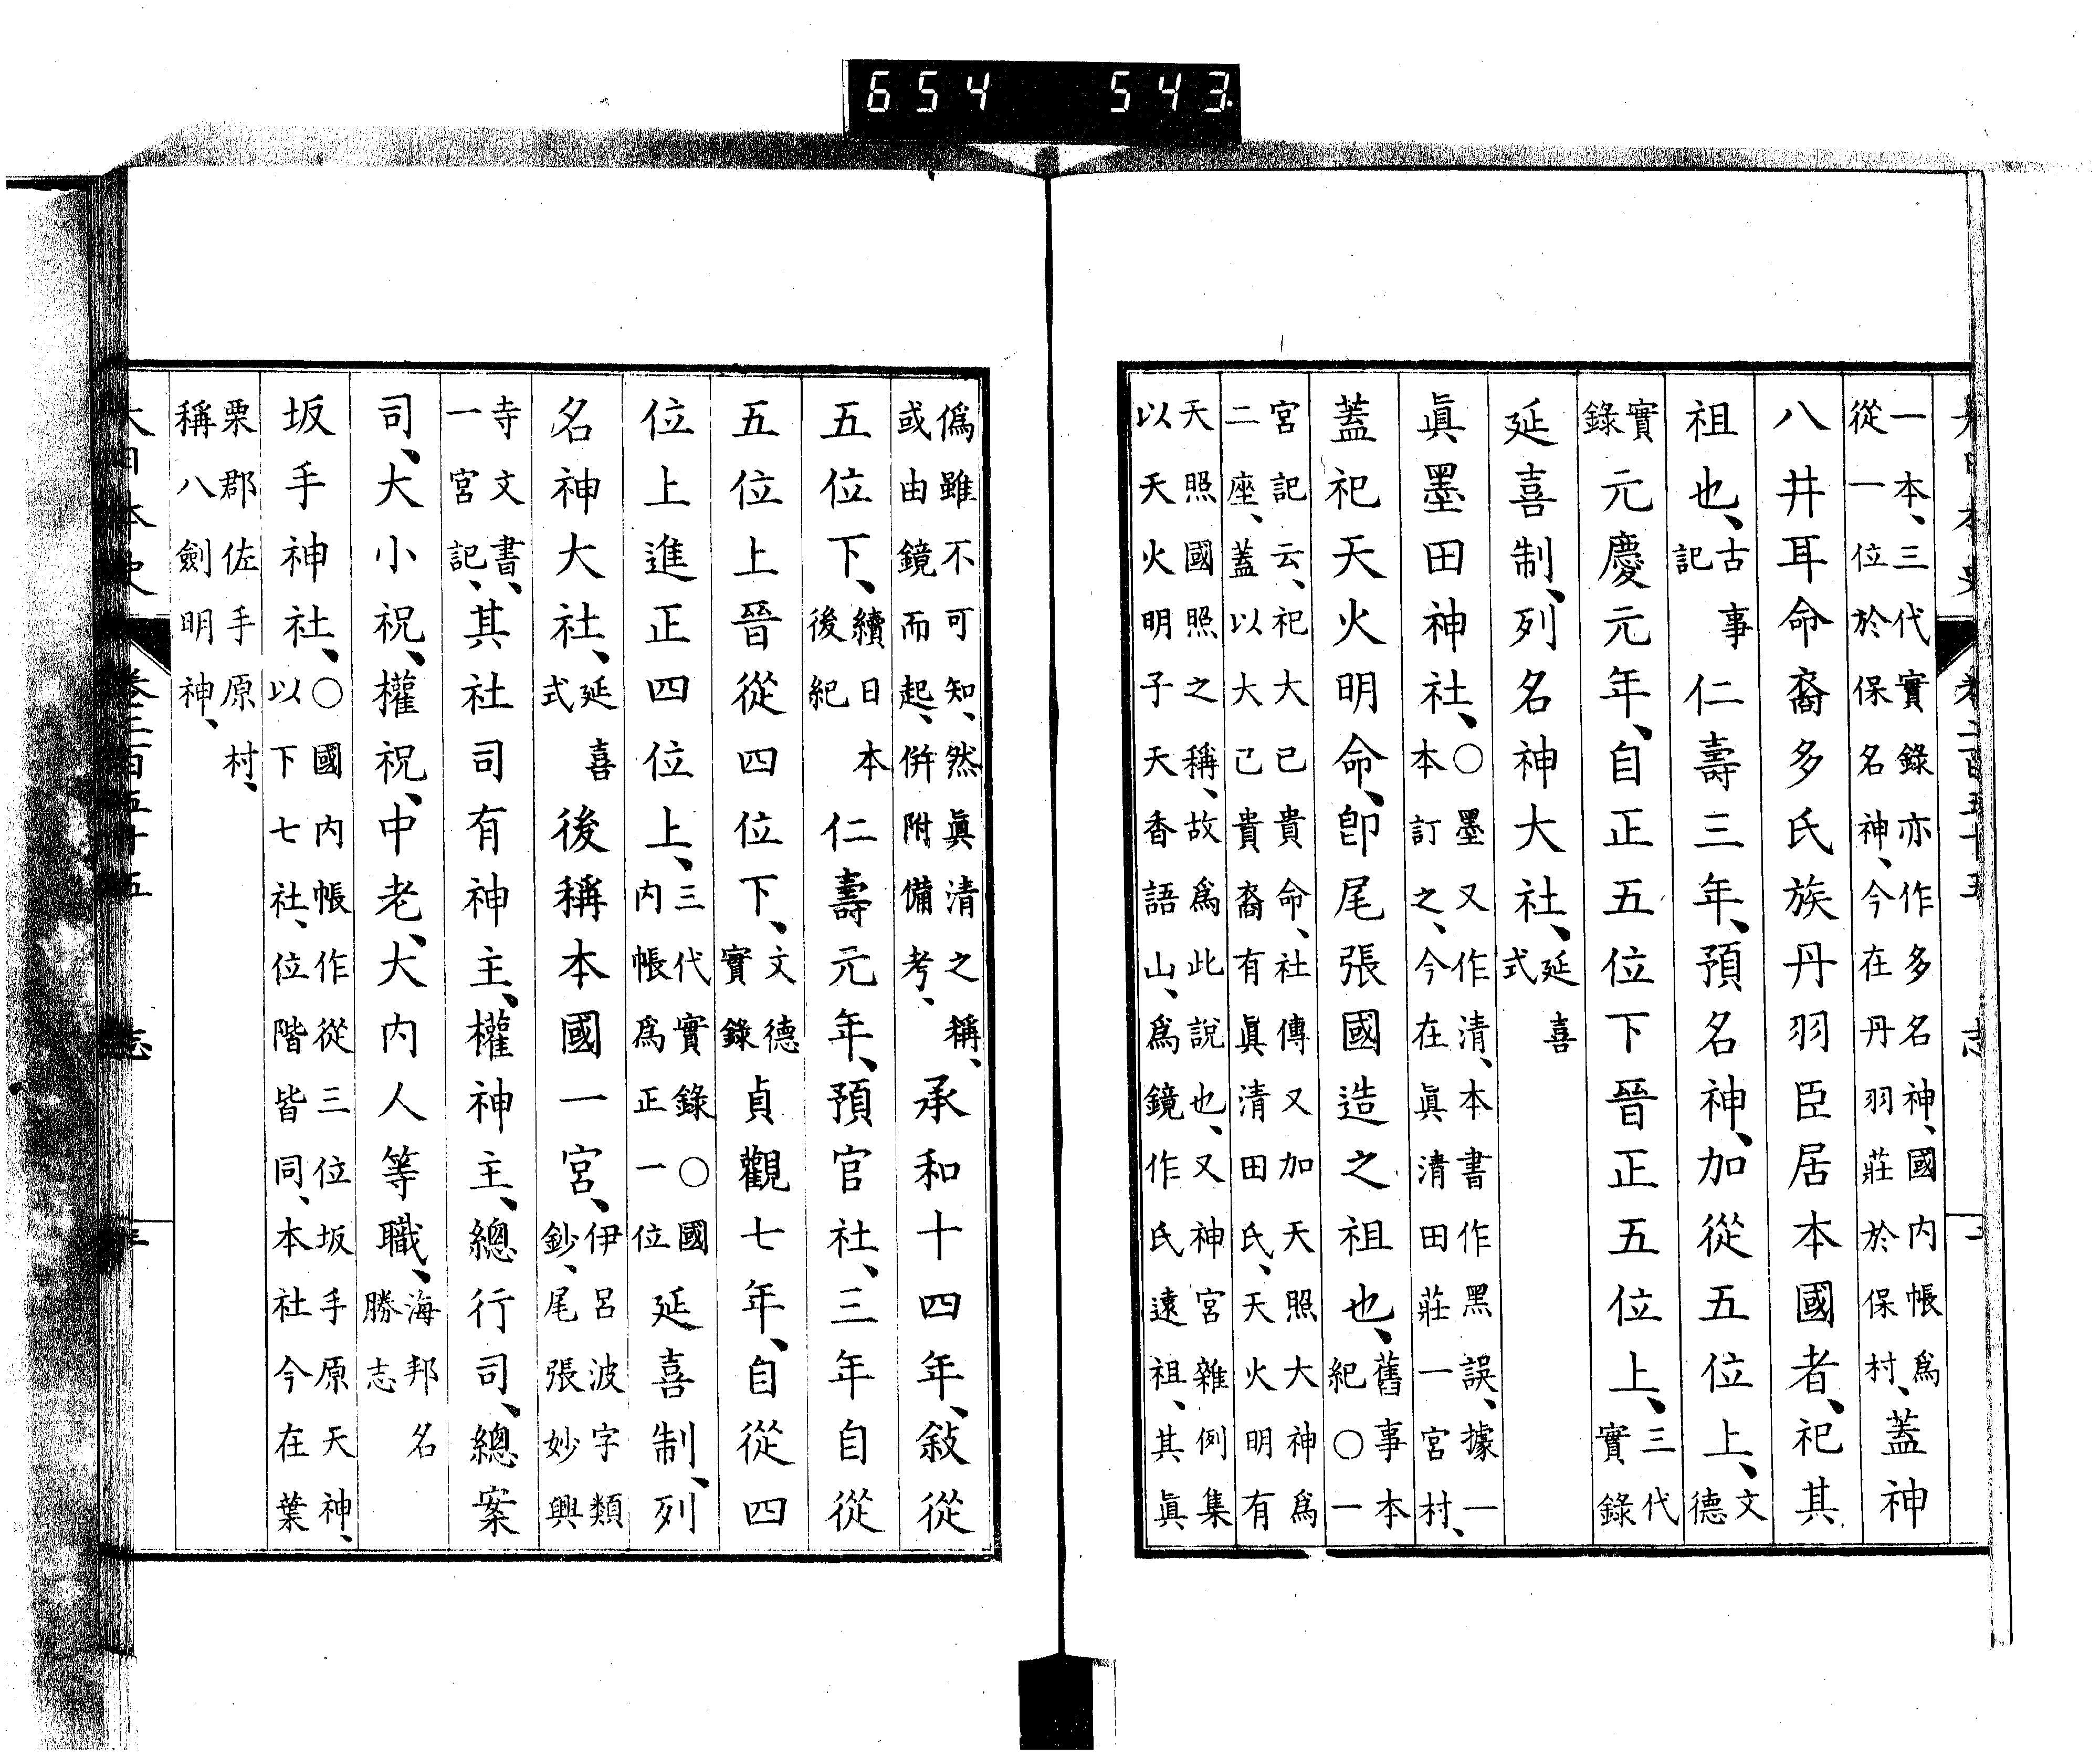 654 543
大日本史 卷二百五十五 志
一本、三代實錄亦作多名神、國內帳爲
從一位於保名神、今在丹羽莊於保村、蓋神
八井耳命裔多氏族丹羽臣居本國者、祀其
祖也、古事記仁壽三年、預名神、加從五位上、文德
實錄元慶元年、自正五位下晉正五位上、三代實錄
延喜制、列名神大社、延喜式
眞墨田神社、○墨又作清、本書作黑誤、據一本訂之、今在眞清田莊一宮村、
蓋祀天火明命、卽尾張國造之祖也、舊事本紀○一
宮記云、祀大己貴命、社傳又加天照大神爲
二座、蓋以大己貴裔有眞清田氏、天火明有
天照國照之稱、故爲此說也、又神宮雜例集
以天火明子天香語山、爲鏡作氏遠祖、其眞
僞雖不可知、然眞清之稱、
或由鏡而起、併附備考、承和十四年、敍從
五位下、續日本後紀仁壽元年、預官社、三年自從
五位上晉從四位下、文德實錄貞觀七年、自從四
位上進正四位上、三代實錄○國內帳爲正一位延喜制、列
名神大社、延喜式後稱本國一宮、伊呂波字類鈔、尾張妙興
寺文書、一宮記、其社司有神主、權神主、總行司、總案
司、大小祝、權祝、中老、大內人等職、海邦名勝志
坂手神社、○國內帳作從三位坂手原天神、以下七社、位階皆同、本社今在葉
栗郡佐手原村、
稱八劍明神、
大日本史 卷二百五十五 志